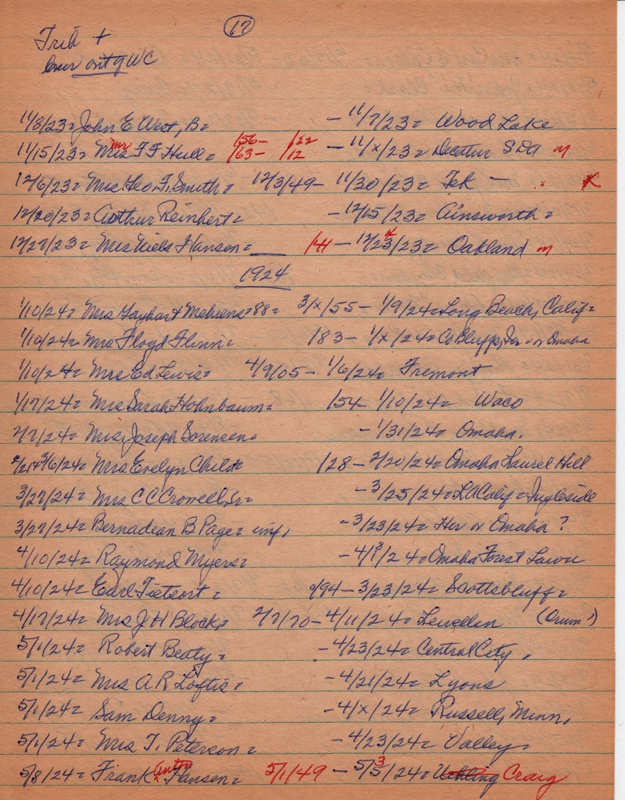 (17)
Trib +
over out of WC
11/8/23= John E West, B= - 11/7/23= Wood Lake
11/15/23= Mrs F F Hull= /56- /63- /22 /12 - 11/x/23= Decatur SDA m
12/6/23= Mrs Geo F Smith= 12/3/49- 11/20/23= Tek -
12/20/23= Arthur Reinhert= - 12/15/23= Ainsworth=
12/27/23= Mrs Niels Hansen= /41 - 12/23/23= Oakland m
1924
1/10/24= Mrs Gayhart Mehrens=88= 3/x/55- 1/9/24= Long Beach, Calif=
1/10/24= Mrs Floyd Flinn= /83- 1/x/24= Co Bluffs, Ia= or Omaha
1/10/24= Mrs Ed Lewis= 4/9/05- 1/6/24= Fremont
1/17/24= Mrs Sarah Hohnbaum= /54- 1/10/24= Waco
2/7/24= Mrs, Joseph Sorensen= - 1/31/24= Omaha.
2/21+3/6/24= Mrs Evelyn Child= /28- 2/20/24= Omaha Laurel Hill
3/27/24= Mrs C C Crowell, Sr= - 3/25/24= LA Calif= Ingleside
3/27/24= Bernadean B Page= inf, - 3/23/24= Her or Omaha?
4/10/24= Raymond Myers= - 4/9/24= Omaha Forest Lawn
4/10/24= Earl 9/94- 3/23/24= Scottsbluff=
4/17/24= Mrs J H Block= 2/7/70- 4/11/24= Lewellen (Orum?)
5/1/24= Robert Beaty= - 4/23/24= Central City,
5/1/24= Mrs A R Loftis= - 4/21/24= Lyons
5/1/24= Sam Denny= - 4/x/24= Russell, Minn,
5/1/24= Mrs T. Peterson= - 4/23/24= Valley=
5/8/24= Frank Hansen= 5/1/49 - 5/3/24= Uehling Craig